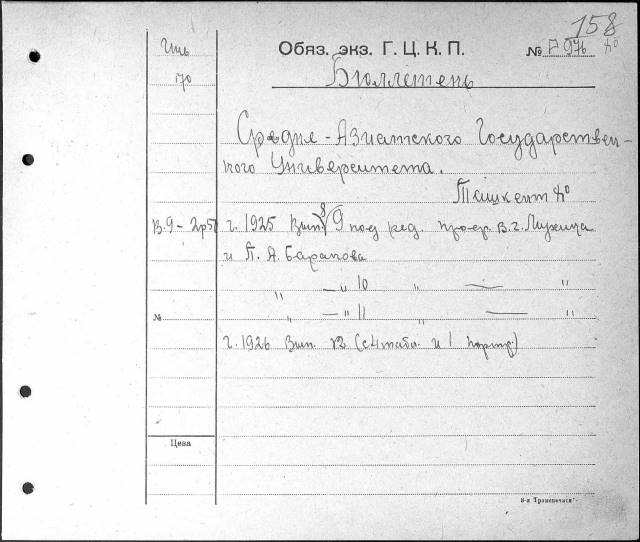 158
Обяз. экз. Г. Ц. К. П.
№ 976
Бюллетень
Средне-Азиатского Государствен-
ного Университета.
Ташкент
В.9 - 2р50
г. 1925 Вып. 8 9 под ред. проф. В. г. Мухина
и П. А. Баранова
„ — „ 10 „ — „
№ „ — „ 11 „ — „
г. 1926 Вып. 12 (с 4 табл. и 1 портр.)
Цена
8-я Транспечати